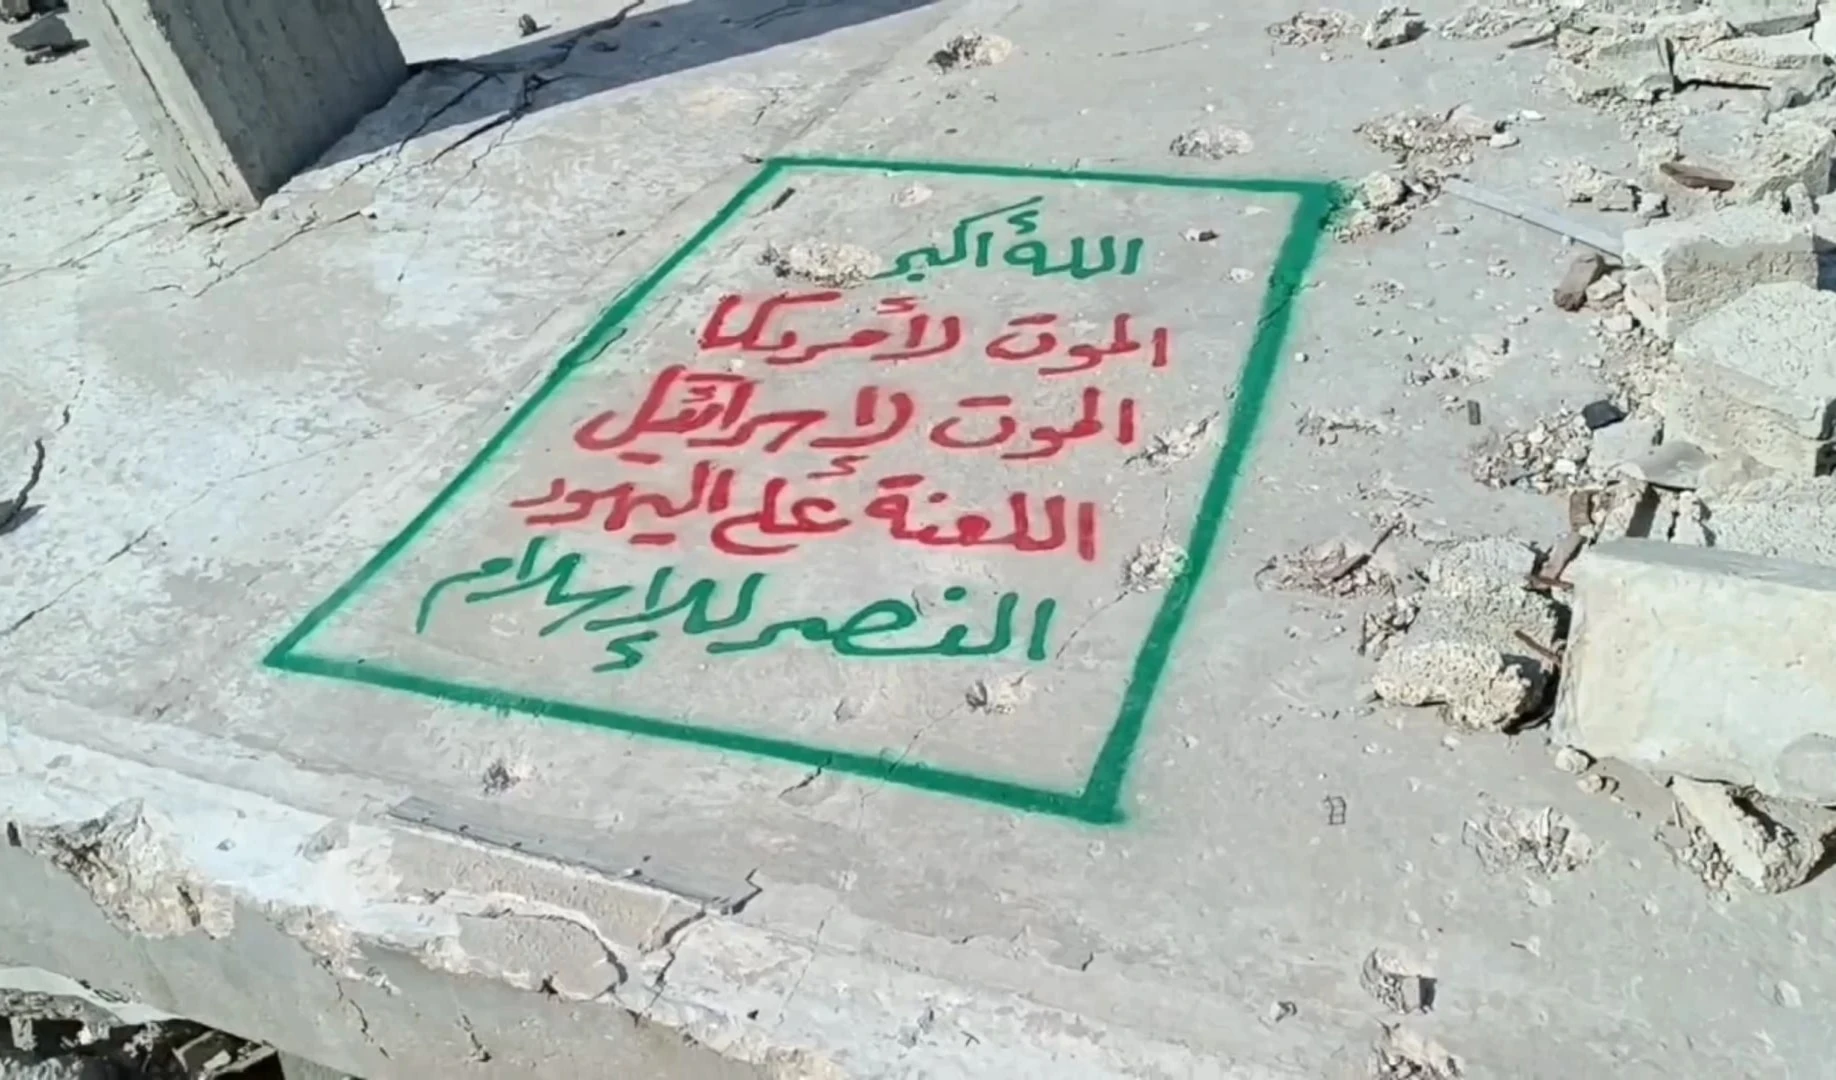 اللهُ أكبر
الموت لأمريكا
الموت لإسرائيل
اللعنة على اليهود
النصر للإسلام